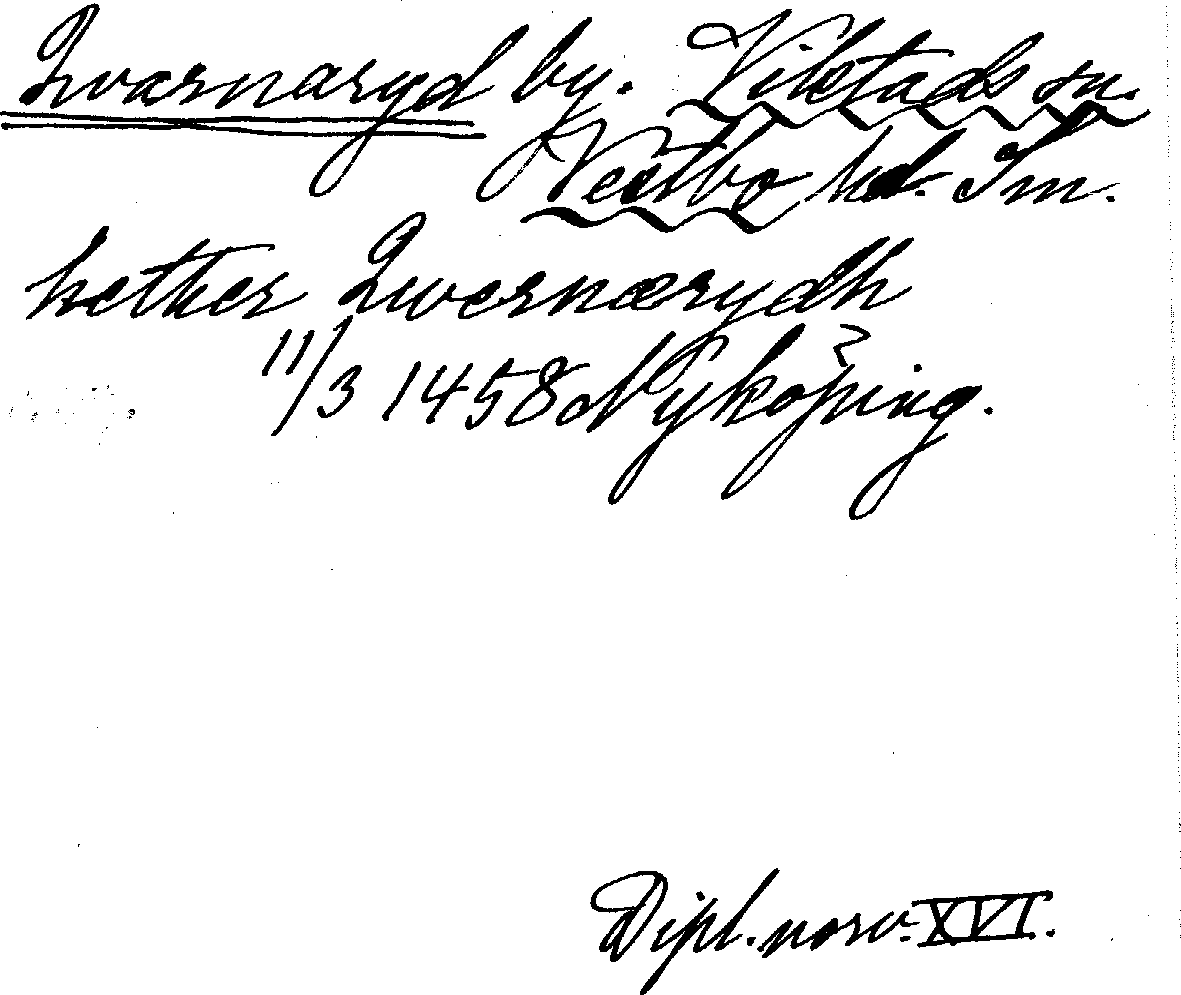 Qvarnaryd by. Vilstads sn.
Vestbo hd. Sm.
hether Qwernærydh
11/3 1458 Nyköping.
Dipl. norv. XVI.